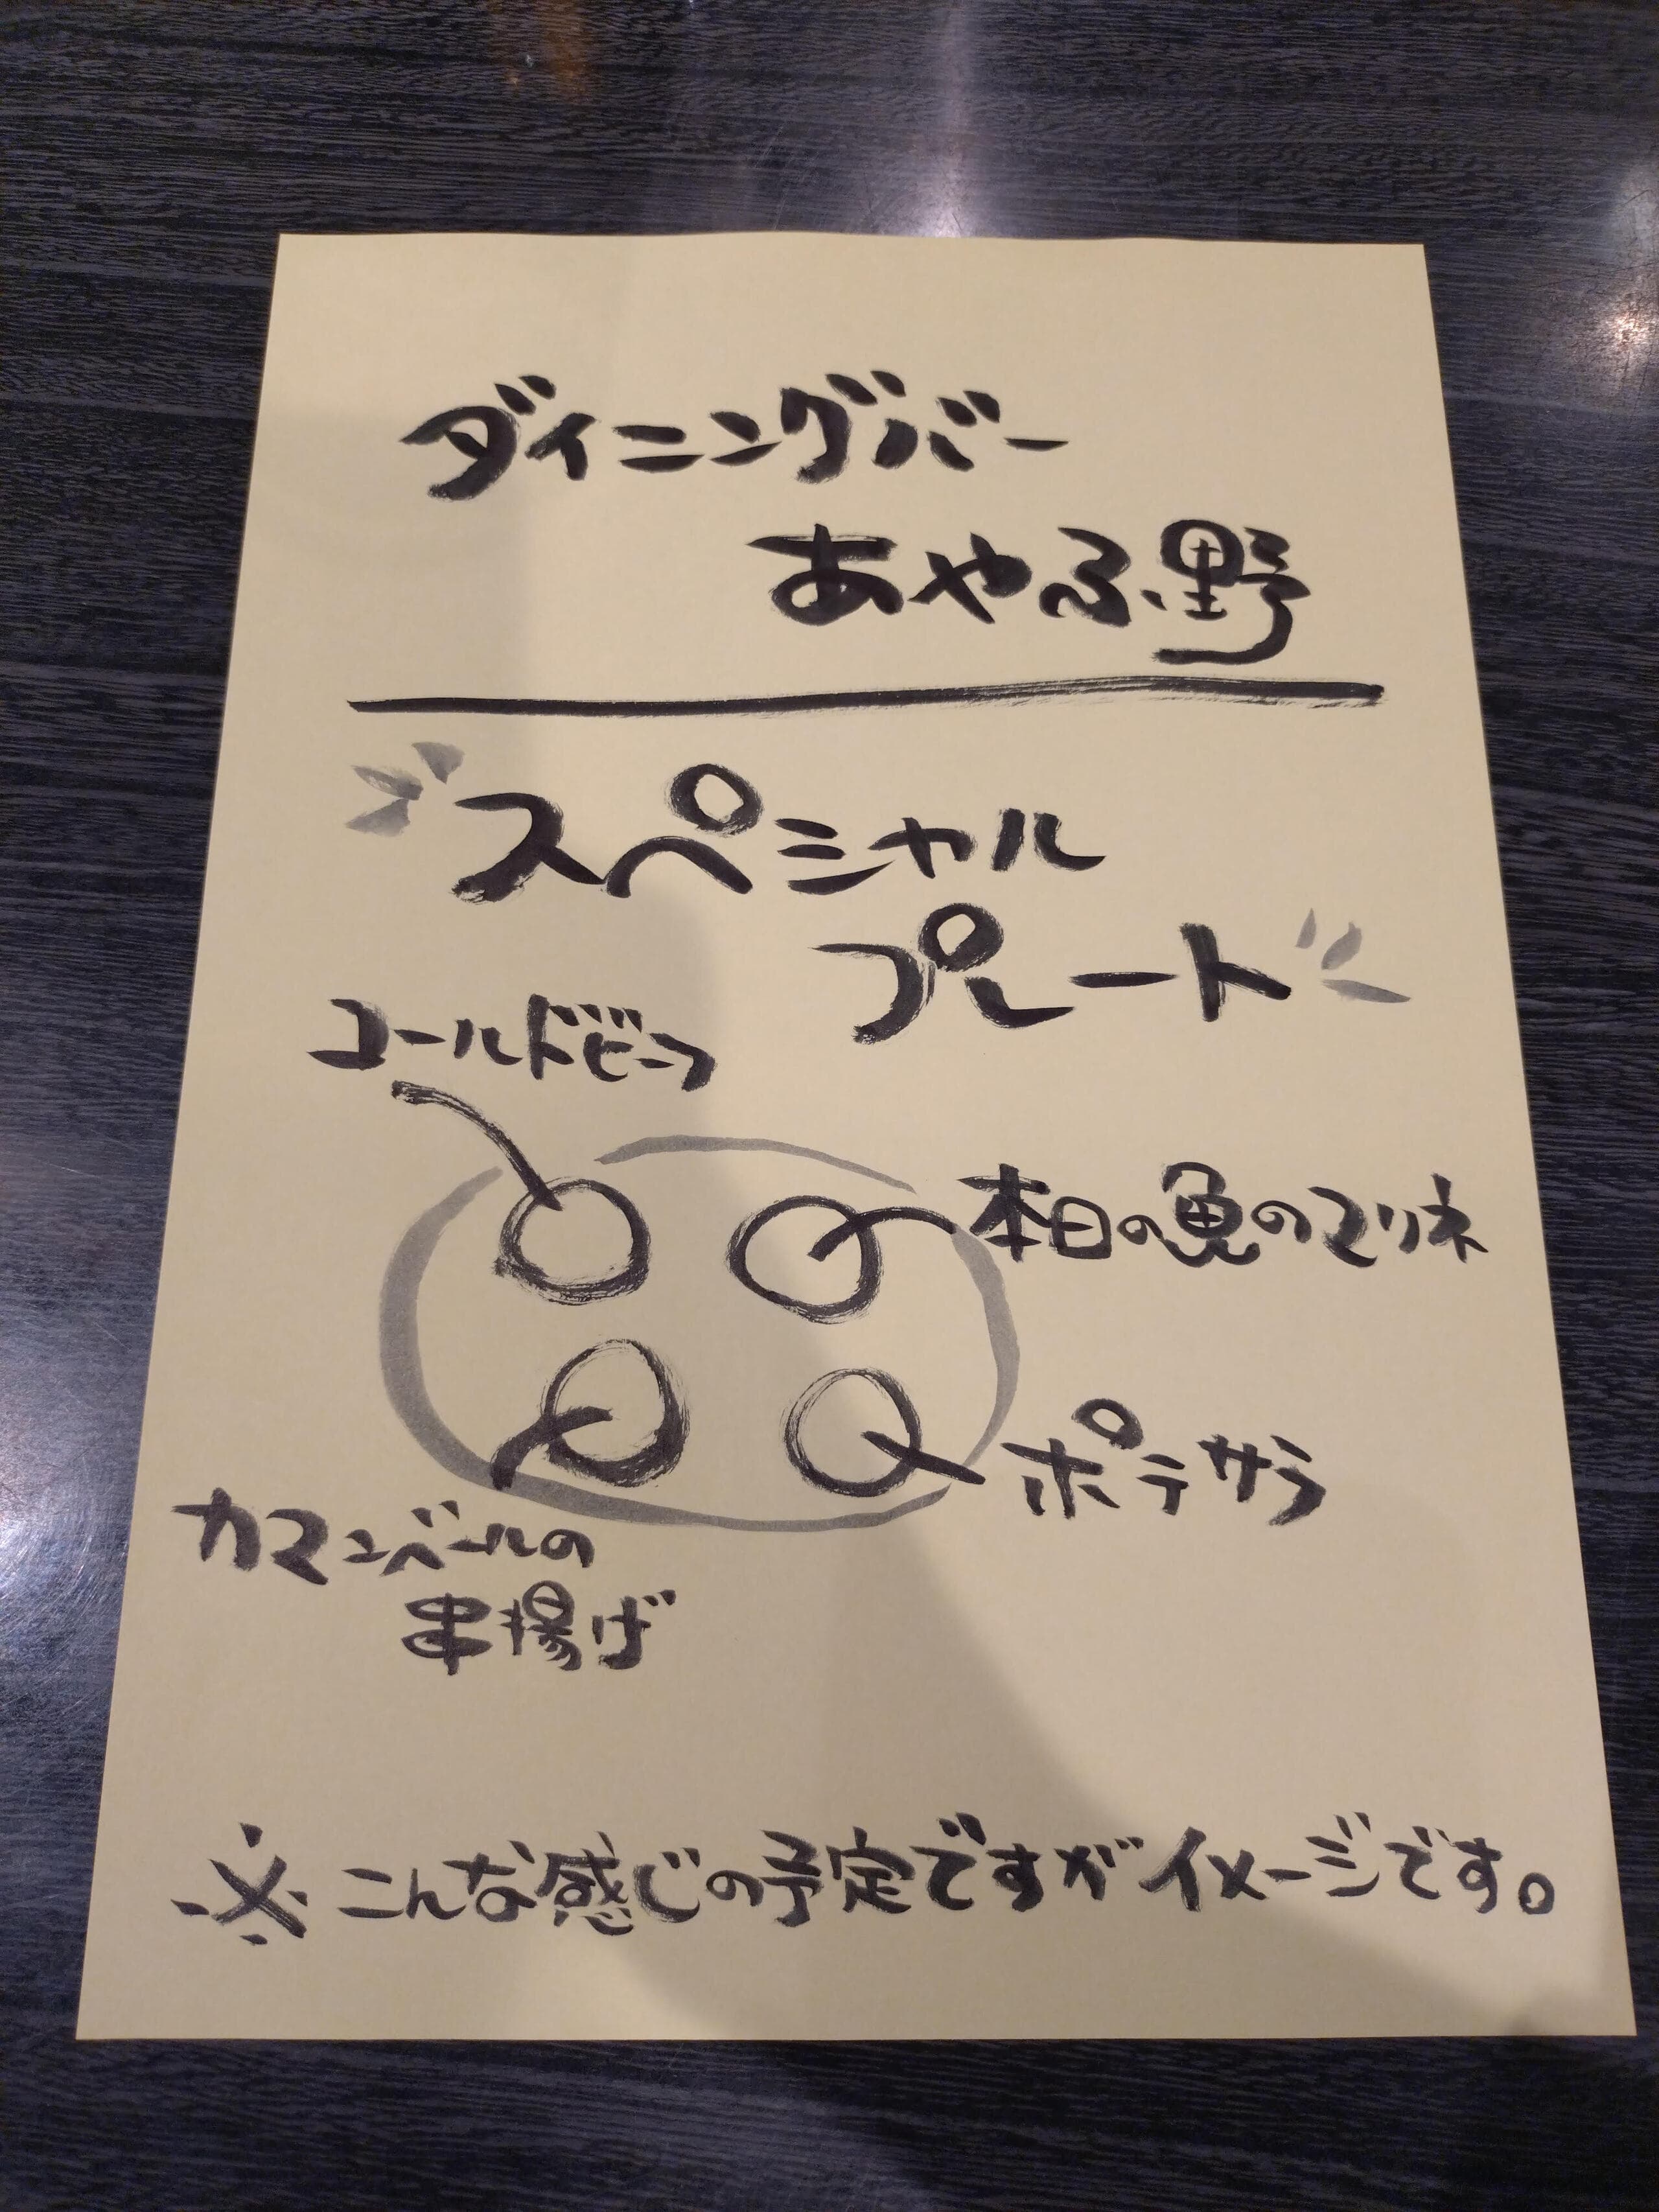 ダイニングバー
あやふ野
スペシャル
プレート
コールドビーフ
本日の魚のマリネ
ポテサラ
カマンベールの
串揚げ
※こんな感じの予定ですがイメージです。